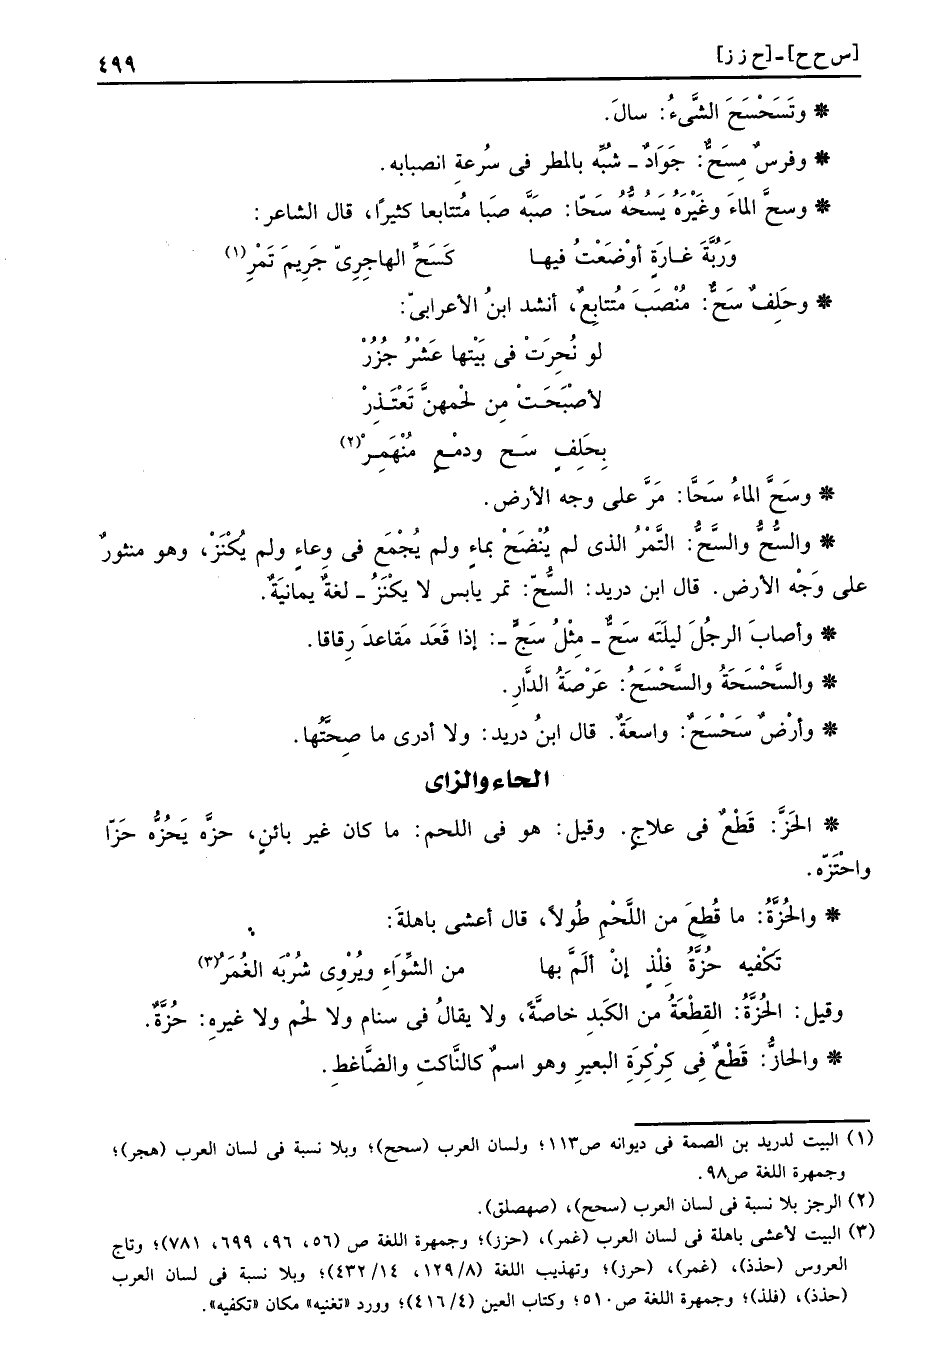 [س ح ح] ـ [ح ز ز]
٤٩٩
* وتَسَحْسَحَ الشَّىءُ: سالَ.
* وفرسٌ مِسَحٌّ: جَوَادٌ ـ شُبِّه بالمطر فى سُرعةِ انصبابه.
* وسحَّ الماءَ وغَيْرَهُ يَسُحُّهُ سَحّا: صبَّه صَبا مُتتابعا كثيرًا، قال الشاعر:
وَرُبَّةَ غـارَةٍ أوْضَعْتُ فيهـا كَسَحِّ الهاجِرِىّ جَرِيمَ تَمْرِ(١)
* وحَلِفٌ سَحٌّ: مُنْصَبَ مُتتابِعٌ، أنشد ابنُ الأعرابىّ:
لو نُحِرَتْ فى بَيْتها عَشْرُ جُزُرْ
لأصْبَحَـتْ مِن لحْمهنَّ تَعْتَـذِرْ
بِحَلِفٍ سَـح ودمْـعٍ مُنْهَمِـرْ(٢)
* وسَحَّ الماءُ سَحَّا: مَرَّ على وجه الأرض.
* والسُّحُّ والسَّحُّ: التَّمْرُ الذى لم يُنْضَحْ بماءٍ ولم يُجْمَع فى وِعاءٍ ولم يُكْنَزْ، وهو منثورٌ
على وَجْه الأرض. قال ابن دريد: السُّحّ: تمر يابس لا يكْنَزُ ـ لغةٌ يمانيَةٌ.
* وأصابَ الرجُلَ ليلَتَه سَحٌّ ـ مثْلُ سَجٍّ ـ: إذا قَعَد مَقاعدَ رِقاقا.
* والسَّحْسَحَةُ والسَّحْسَحُ: عَرْصَةُ الدَّارِ.
* وأرْضٌ سَحْسَحٌ: واسعَةٌ. قال ابنُ دريد: ولا أدرى ما صِحتَّها.
الحاء والزاى
* الحَزَّ: قَطْعٌ فى علاجٍ. وقيل: هو فى اللحم: ما كان غير بائنٍ، حزَّه يَحُزُّه حَزّا
واحْتَزّه.
* والحُزَّةُ: ما قُطِعَ من اللَّحْمِ طُولاً، قال أعشى باهلةَ:
تَكْفيه حُزَّةُ فِلْذٍ إنْ ألَمَّ بها من الشِّوَاءِ ويُرْوِى شُرْبَه الغُمَرُ(٣)
وقيل: الحُزَّةُ: القِطْعَةُ من الكَبَدِ خاصَّةً، ولا يقالُ فى سنام ولا لحْم ولا غيرهِ: حُزَّةٌ.
* والحازُّ: قَطْعٌ فِى كِرْكِرَةِ البعيرِ وهو اسمٌ كالنَّاكتِ والضَّاغطِ.
(١) البيت لدريد بن الصمة فى ديوانه ص١١٣؛ ولسان العرب (سحح)؛ وبلا نسبة فى لسان العرب (هجر)؛
وجمهرة اللغة ص٩٨.
(٢) الرجز بلا نسبة فى لسان العرب (سحح)، (صهصلق).
(٣) البيت لأعشى باهلة فى لسان العرب (غمر)، (حزز)؛ وجمهرة اللغة ص (٥٦، ٩٦، ٦٩٩، ٧٨١)؛ وتاج
العروس (حذذ)، (غمر)، (حرز)؛ وتهذيب اللغة (١٢٩/٨، ٤٣٢/١٤)؛ وبلا نسبة فى لسان العرب
(حذذ)، (فلذ)؛ وجمهرة اللغة ص٥١٠؛ وكتاب العين (٤١٦/٤)؛ وورد «تغنيه» مكان «تكفيه».